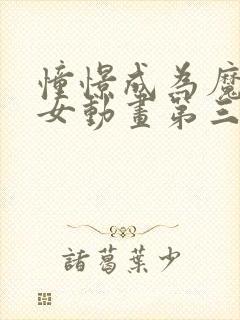 憧憬成為魔
女動畫第三
諸葛葉少